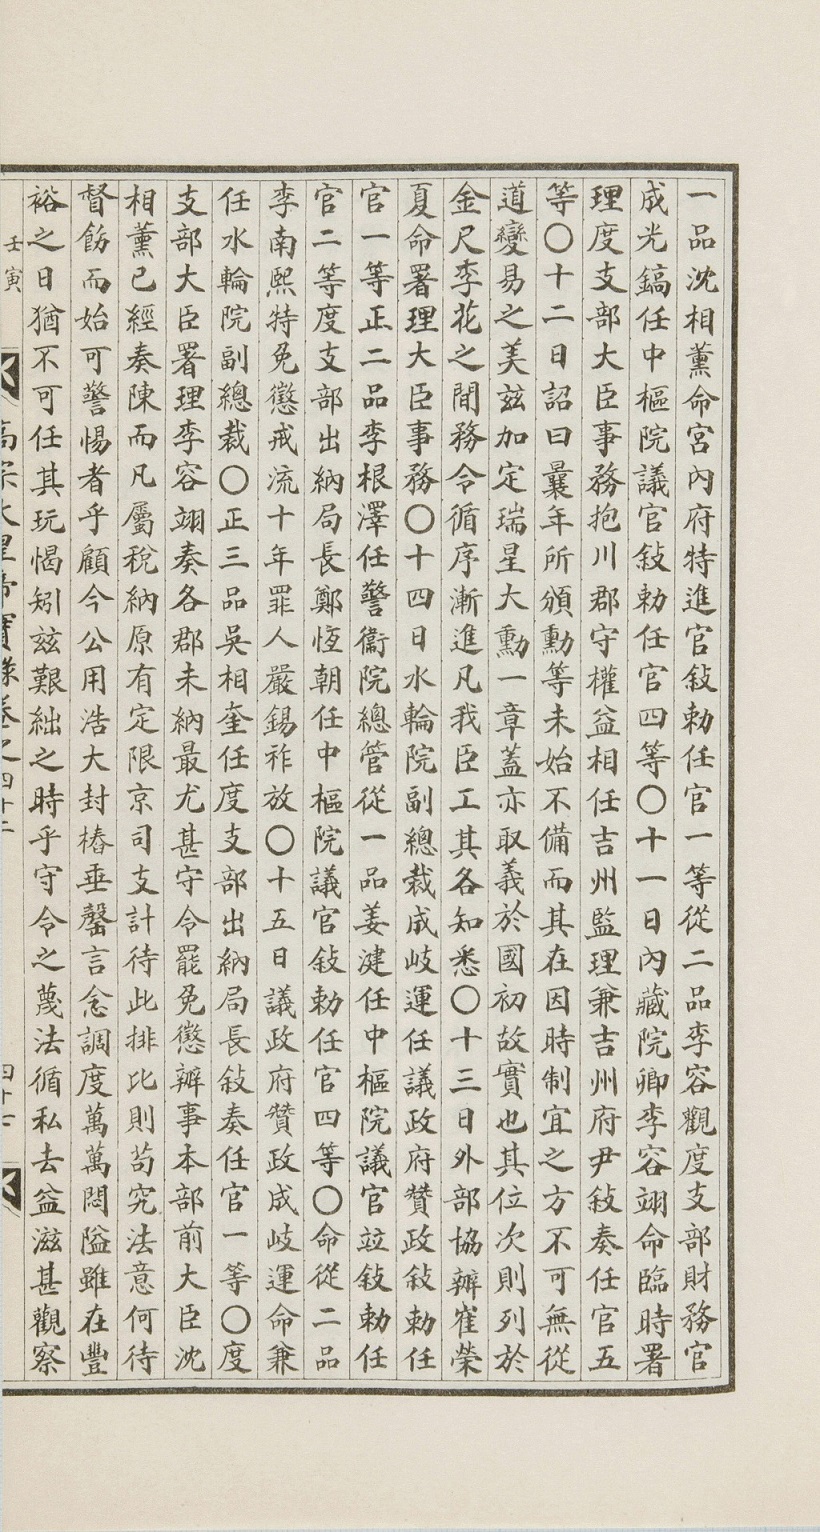 一品沈相薰命宮內府特進官敍勅任官一等從二品李容觀度支部財務官
成光鎬任中樞院議官敍勅任官四等〇十一日內藏院卿李容翊命臨時署
理度支部大臣事務抱川郡守權益相任吉州監理兼吉州府尹敍奏任官五
等〇十二日詔曰曩年所頒勳等未始不備而其在因時制宜之方不可無從
道變易之美玆加定瑞星大勳一章蓋亦取義於國初故實也其位次則列於
金尺李花之間務令循序漸進凡我臣工其各知悉〇十三日外部協辦崔榮
夏命署理大臣事務〇十四日水輪院副總裁成岐運任議政府贊政敍勅任
官一等正二品李根澤任警衞院總管從一品姜湕任中樞院議官竝敍勅任
官二等度支部出納局長鄭恆朝任中樞院議官敍勅任官四等〇命從二品
李南熙特免懲戒流十年罪人嚴錫祚放〇十五日議政府贊政成岐運命兼
任水輪院副總裁〇正三品吳相奎任度支部出納局長敍奏任官一等〇度
支部大臣署理李容翊奏各郡未納最尤甚守令罷免懲辦事本部前大臣沈
相薰已經奏陳而凡屬稅納原有定限京司支計待此排比則苟究法意何待
督飭而始可警惕者乎顧今公用浩大封樁垂罄言念調度萬萬悶隘雖在豐
裕之日猶不可任其玩愒矧玆艱絀之時乎守令之蔑法循私去益滋甚觀察
壬寅
高宗太皇帝實錄卷之四十二